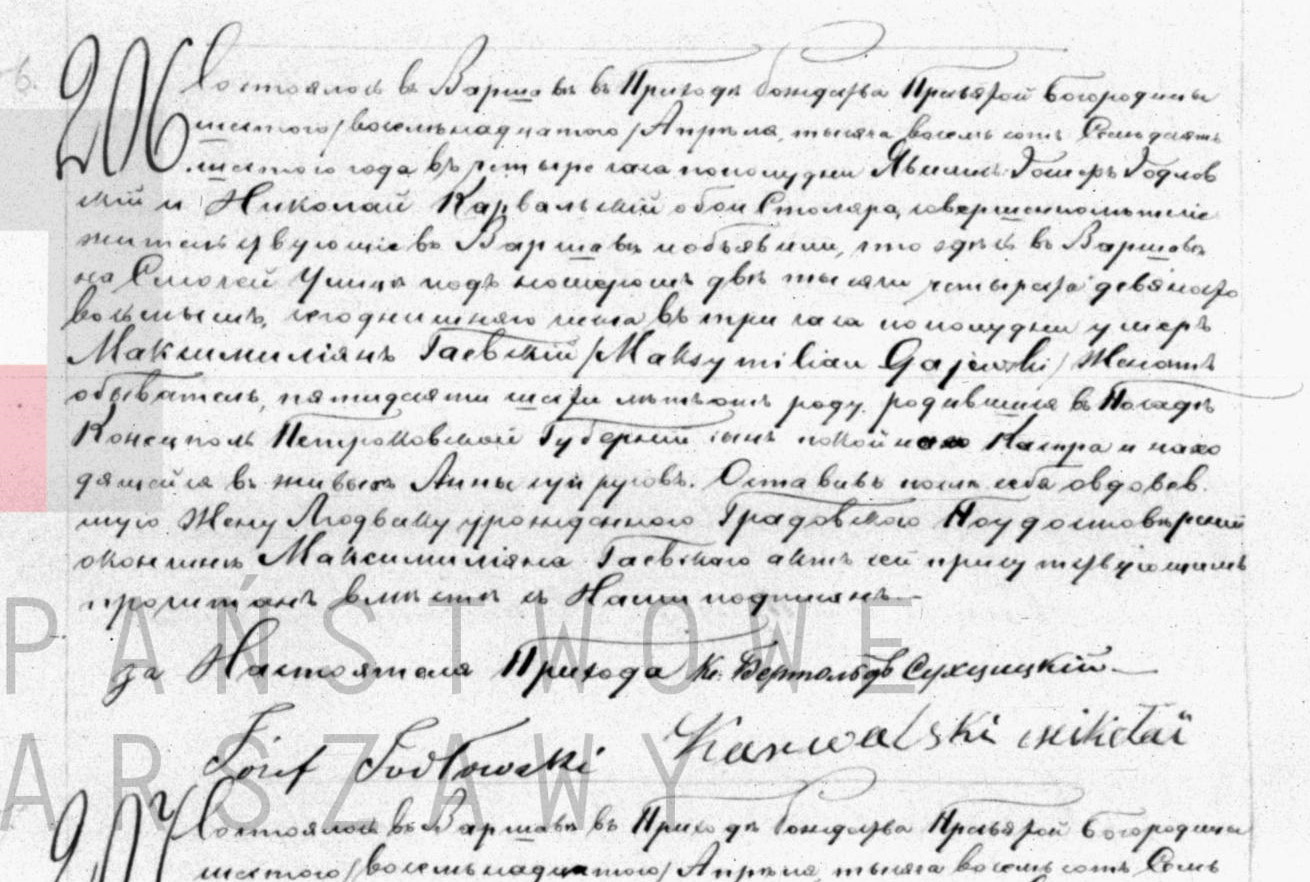 206
Состоялось въ Варшавѣ въ Приходѣ Рождества Пресвятой Богородицы
шестого /восемьнадцатого/ Апрѣля, тысяча восемь сотъ Семьдесятъ
шестого года въ четыре часа пополудни Явились
скій и Николай Карвальскій обои Столяра, совершеннолѣтніе
жительствующіе въ Варшавѣ и объявили, что здѣсь въ Варшавѣ
на Смочей Улицѣ подъ номеромъ двѣ тысячи четыреста девяносто
восьмымъ, сегоднишняго числа въ три часа пополудни умеръ
Максимиліянъ Гаевскій /Maksymilian Gajewski/ Женатъ
обыватель, пятидсяти шести лѣтъ отъ роду, родившійся въ Посадѣ
Конецполь Петроковской Губерніи сынъ покойного и нахо
дящейся въ живыхъ Анны супруговъ. Оставивъ послѣ себя овдовѣв
шую Жену урожденного Градовского По удостовѣреніи
окончинѣ Максимиліяна Гаевскаго актъ сей присутствующимъ
прочитанъ вмѣстѣ съ Нами подписанъ.—
за Настоятеля Прихода Кс. Бертольдъ Сухцицкій
Józef Godłowski Karwalski Mikołaï
PAŃSTWOWE
ARSZAWY
207
Состоялось въ Варшавѣ въ Приходѣ Рождества Пресвятой Богородицы
шестого /восемьнадцатого/ Апрѣля, тысяча восемь сотъ Семь